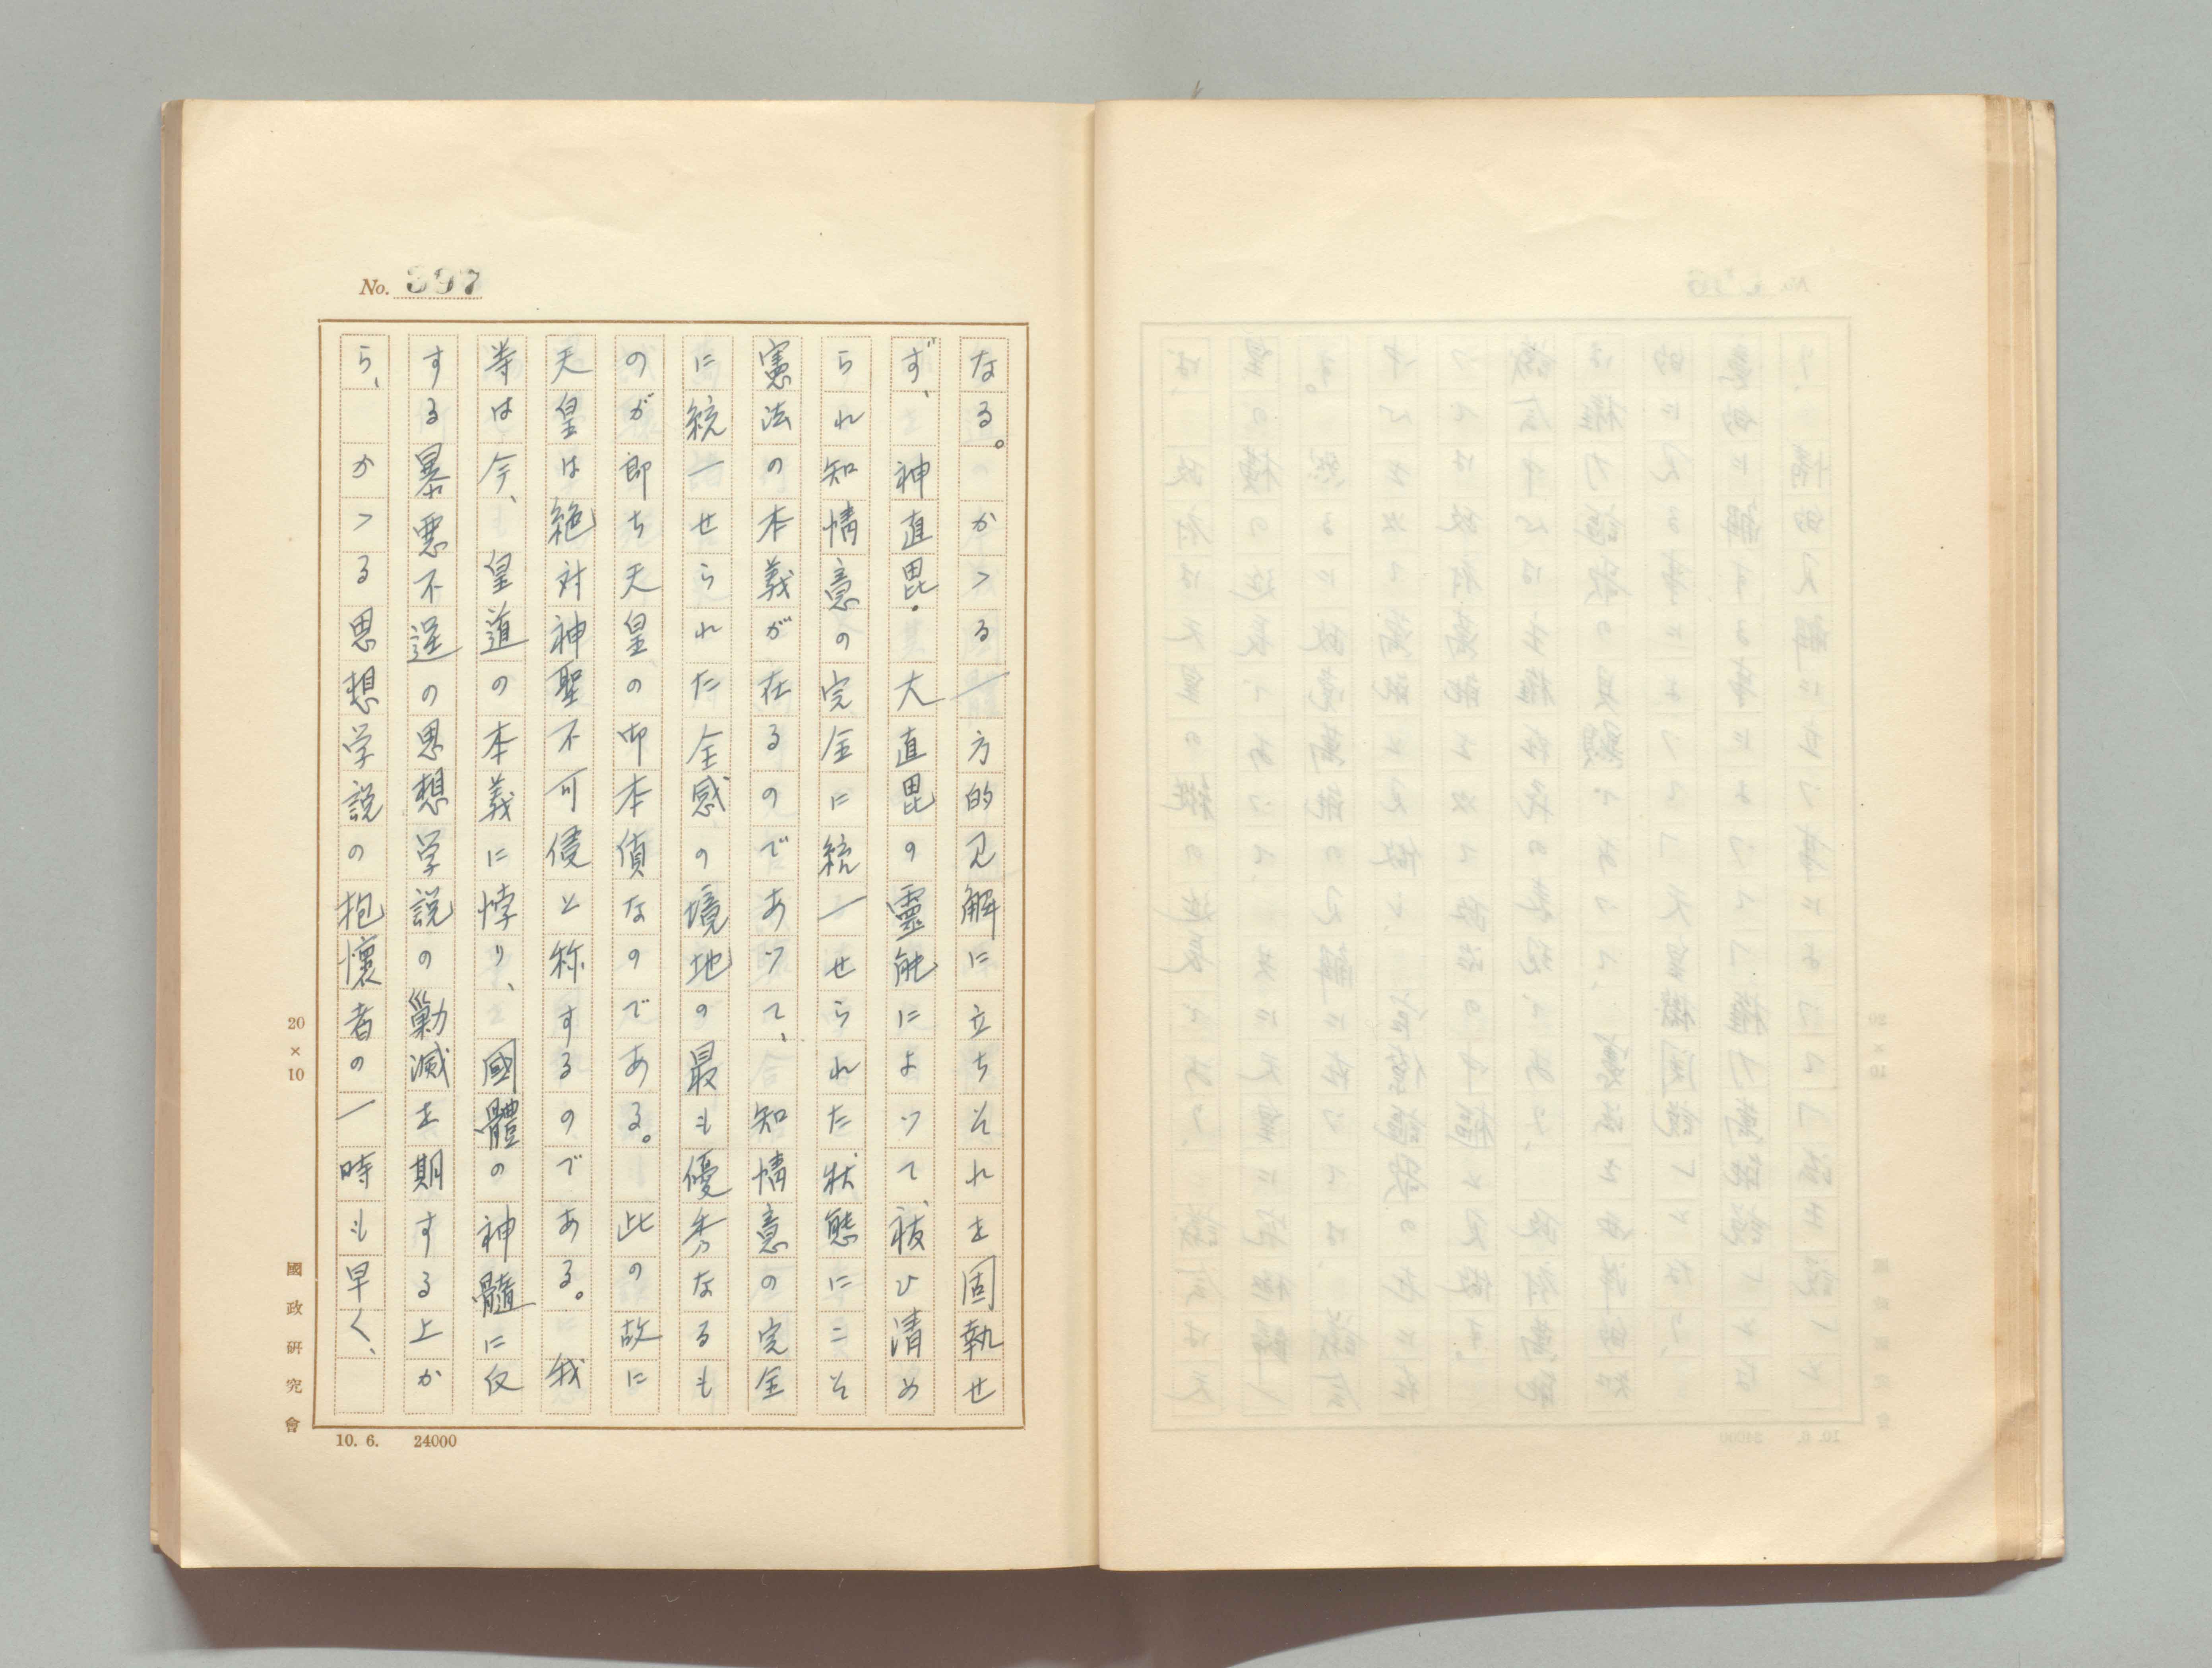 No. 397
なる。かゝる一方的見解に立ちそれを固執せ
ず、神直毘・大直毘の靈能によつて、祓ひ清め
られ知情意の完全に統一せられた状態にこそ
憲法の本義が在るのであつて、知情意の完全
に統一せられた全感の境地の最も優秀なるも
のが即ち天皇の御本偵なのである。此の故に
天皇は絶対神聖不可侵と称するのである。我
等は今、皇道の本義に悖り、國體の神髓に仮
する暴悪不逞の思想学説の剿滅を期する上か
ら、かゝる思想学説の抱懷者の一時も早く、
20×10
國政研究會
10. 6. 24000